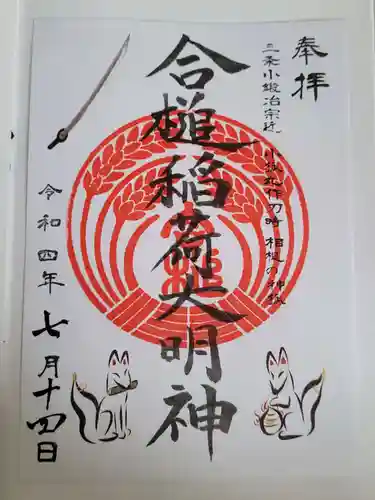 奉拝
三条小鍛冶宗近
小狐丸作刀時 相槌の神狐
合槌稲荷大明神
令和四年
七月十四日